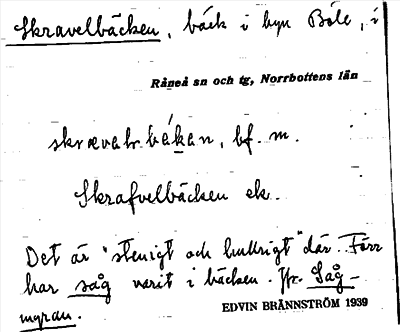 Skravelbäcken, bäck i byn Böle, i
Råneå sn och tg, Norrbottens län
bf. m.
Skrafvelbäcken ek.
Det är "stenigt och hulkrigt" där. Förr
har såg varit i bäcken. Jfr. Såg-
myran.
EDVIN BRÄNNSTRÖM 1939